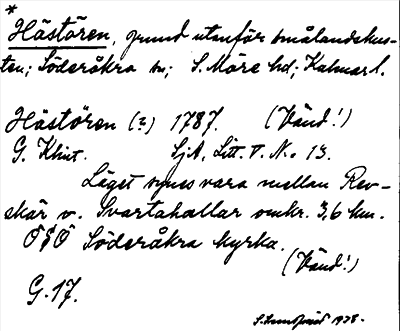 *
Hästören, grund utanför Smålandskus-
ten; Söderåkra sn; S. Möre hd; Kalmar l.
Hästören (?) 1787. (Vänd!)
G. Klint. SjA, Litt. T. No 13.
Läget synes vara mellan Rev-
skär o. Svartahällar omkr. 3,6 km.
OSO Söderåkra kyrka.
(Vänd!)
G. 17.
1938.